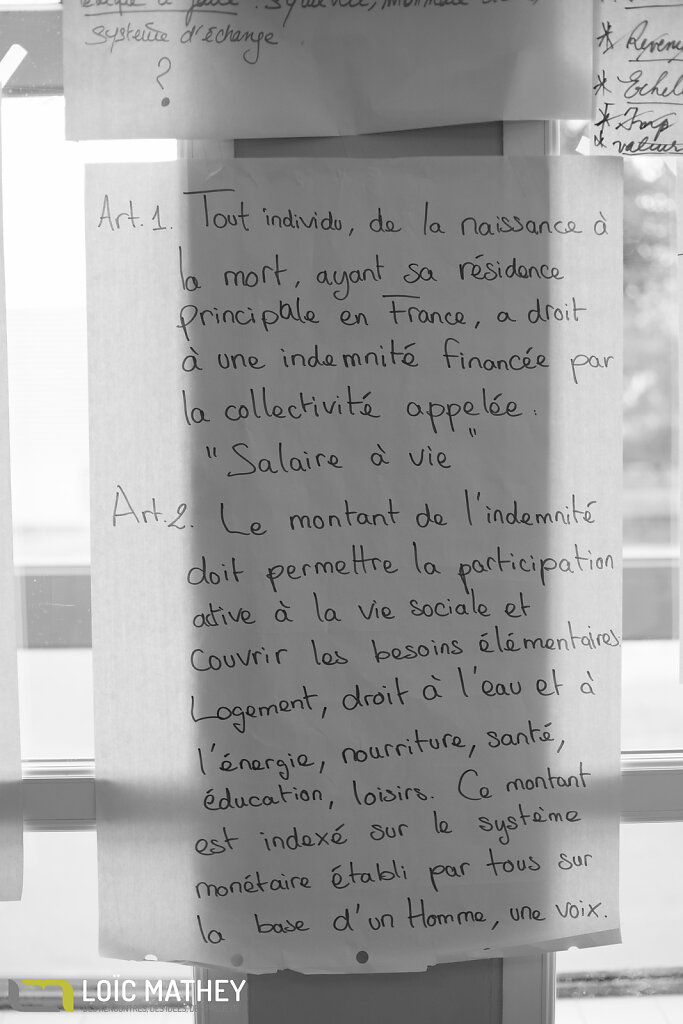 système d'échange
?
* Reven
* Echel
*
* valeur
Art. 1. Tout individu, de la naissance à
la mort, ayant sa résidence
principale en France, a droit
à une indemnité financée par
la collectivité appelée :
"Salaire à vie"
Art. 2. Le montant de l'indemnité
doit permettre la participation
active à la vie sociale et
couvrir les besoins élémentaires
Logement, droit à l'eau et à
l'énergie, nourriture, santé,
éducation, loisirs. Ce montant
est indexé sur le système
monétaire établi par tous sur
la base d'un Homme, une voix.
LOÏC MATHEY